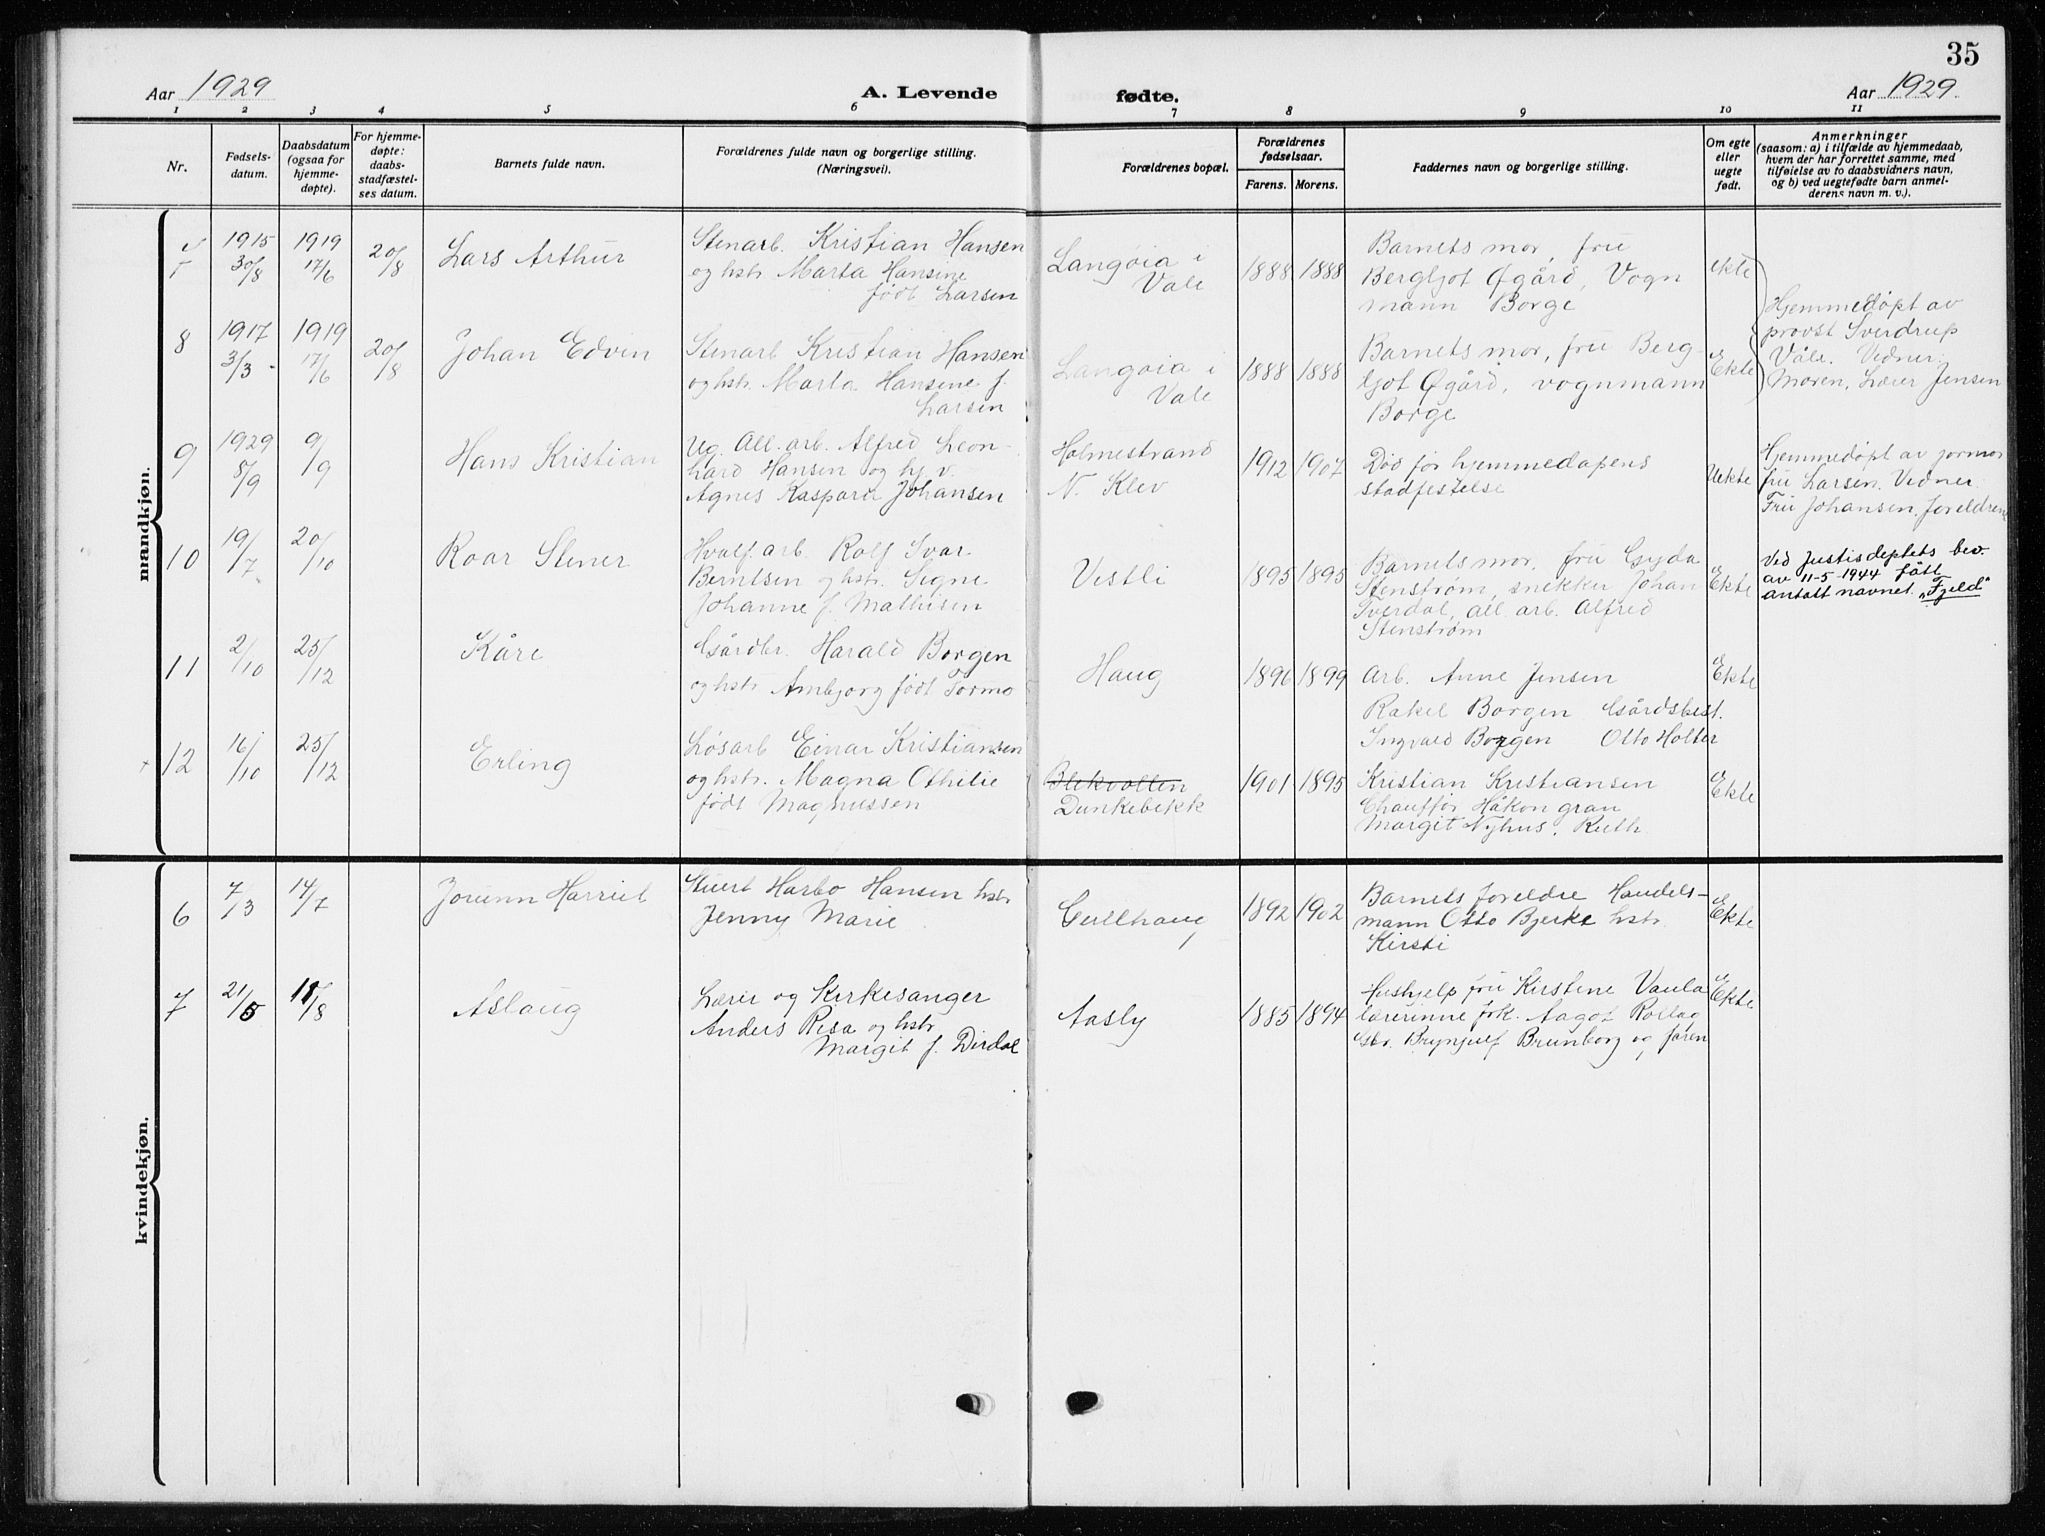 35
Aar 1929
A. Levende
fødte.
Aar 1929.
1 2 3 4 5 6 7 8 9 10 11
Nr.
Fødsels-
datum.
Daabsdatum
(ogsaa for
hjemme-
døpte).
For hjemme-
døpte:
daabs-
stadfæstel-
ses datum.
Barnets fulde navn.
Forældrenes fulde navn og borgerlige stilling.
(Næringsvei).
Forældrenes bopæl.
Forældrenes
fødselsaar.
Farens. Morens.
Faddernes navn og borgerlige stilling.
Om egte
eller
uegte
født.
Anmerkninger
(saasom: a) i tilfælde av hjemmedaab,
hvem der har forrettet samme, med
tilføielse av to daabsvidners navn,
og b) ved uegtefødte barn anmel-
derens navn m. v.).
mandkjøn.
7
1915
30/8
1919
17/6
20/8
Lars Arthur
Stenarb. Kristian Hansen
og hstr Marta Hansine
født Larsen
Langøia i
Vale
1888 1888
Barnets mor, fru
Bergljot Øgård, Vogn
mann Borge
ekte
Hjemmedøpt av
provst Sverdrup
Våle. Vidner:
Moren, Lærer Jensen
8
1917
3/3
1919
17/6
20/8
Johan Edvin
Stenarb Kristian Hansen
og hstr. Marta Hansine f.
Larsen
Langøia i
Vale
1888 1888
Barnets mor, fru Berg-
ljot Øgård, vognmann
Borge
Ekte
9
1929
8/9
9/9
Hans Kristian
Ug. All. arb. Alfred Leon-
hard Hansen og hj. v.
Agnes Kaspara Johansen
Holmestrand
N. Klev
1912 1907
Død før hjemmedåpens
stadfestelse
Uekte
Hjemmedøpt av jormor
fru Larsen. Vidner:
Fru Johansen, foreldrene
10
19/7
20/10
Roar Stener
Hvalf. arb. Rolf Ivar
Berntsen og hstr. Signe
Johanne f. Mathisen
Vestli
1895 1895
Barnets mor, fru Gyda
Stenstrøm, snekker Johan
Sverdal, all. arb. Alfred
Stenstrøm
Ekte
Ved Justisdeptets bev.
av 11-5-1944 fått
antatt navnet "Fjeld"
11
2/10
25/12
Kåre
Gårdbr. Harald Borgen
og hstr Ambjørg født Tormo
Haug
1896 1899
Arb. Anne Jensen
Rakel Borgen Gårdsbest.
Ingvald Borgen Otto Holter
Ekte
12
16/10
25/12
Erling
Løsarb Einar Kristiansen
og hstr. Magna Othilie
født Magnussen
Blekvollen
Dunkebekk
1901 1895
Kristian Kristiansen
Chauffør Håkon gran
Margit Nyhus, Ruth
Ekte
kvindekjøn.
6
7/3
14/7
Jorunn Harriet
Stuert Harbo Hansen hstr
Jenny Marie
Gullhaug
1892 1902
Barnets foreldre Handels-
mann Otto Bjerke hstr
Kirsti
Ekte
7
21/5
/8
Aslaug
Lærer og Kirkesanger
Anders Risa og hstr
Margit f. Dirdal
Aasly
1885 1894
Hushjelp fru Kirstine Vaula
lærerinne frk. Aagot Rollag
Gbr. Brynjulf Brunborg og faren
Ekte